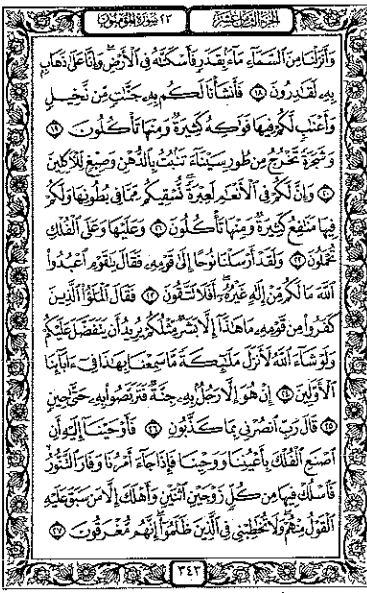 الجزء الثامن عشر ٢٣ سورة المؤمنون
وَأَنزَلْنَا مِنَ ٱلسَّمَآءِ مَآءًۢ بِقَدَرٍ فَأَسْكَنَّٰهُ فِى ٱلْأَرْضِۖ وَإِنَّا عَلَىٰ ذَهَابٍۭ
بِهِۦ لَقَٰدِرُونَ ١٨ فَأَنشَأْنَا لَكُم بِهِۦ جَنَّٰتٍ مِّن نَّخِيلٍ
وَأَعْنَٰبٍ لَّكُمْ فِيهَا فَوَٰكِهُ كَثِيرَةٌ وَمِنْهَا تَأْكُلُونَ ١٩
وَشَجَرَةً تَخْرُجُ مِن طُورِ سَيْنَآءَ تَنۢبُتُ بِٱلدُّهْنِ وَصِبْغٍ لِّلْءَاكِلِينَ
٢٠ وَإِنَّ لَكُمْ فِى ٱلْأَنْعَٰمِ لَعِبْرَةًۖ نُّسْقِيكُم مِّمَّا فِى بُطُونِهَا وَلَكُمْ
فِيهَا مَنَٰفِعُ كَثِيرَةٌ وَمِنْهَا تَأْكُلُونَ ٢١ وَعَلَيْهَا وَعَلَى ٱلْفُلْكِ
تُحْمَلُونَ ٢٢ وَلَقَدْ أَرْسَلْنَا نُوحًا إِلَىٰ قَوْمِهِۦ فَقَالَ يَٰقَوْمِ ٱعْبُدُوا۟
ٱللَّهَ مَا لَكُم مِّنْ إِلَٰهٍ غَيْرُهُۥٓۖ أَفَلَا تَتَّقُونَ ٢٣ فَقَالَ ٱلْمَلَؤُا۟ ٱلَّذِينَ
كَفَرُوا۟ مِن قَوْمِهِۦ مَا هَٰذَآ إِلَّا بَشَرٌ مِّثْلُكُمْ يُرِيدُ أَن يَتَفَضَّلَ عَلَيْكُمْ
وَلَوْ شَآءَ ٱللَّهُ لَأَنزَلَ مَلَٰٓئِكَةً مَّا سَمِعْنَا بِهَٰذَا فِىٓ ءَابَآئِنَا
ٱلْأَوَّلِينَ ٢٤ إِنْ هُوَ إِلَّا رَجُلٌۢ بِهِۦ جِنَّةٌ فَتَرَبَّصُوا۟ بِهِۦ حَتَّىٰ حِينٍ
٢٥ قَالَ رَبِّ ٱنصُرْنِى بِمَا كَذَّبُونِ ٢٦ فَأَوْحَيْنَآ إِلَيْهِ أَنِ
ٱصْنَعِ ٱلْفُلْكَ بِأَعْيُنِنَا وَوَحْيِنَا فَإِذَا جَآءَ أَمْرُنَا وَفَارَ ٱلتَّنُّورُ
فَٱسْلُكْ فِيهَا مِن كُلٍّ زَوْجَيْنِ ٱثْنَيْنِ وَأَهْلَكَ إِلَّا مَن سَبَقَ عَلَيْهِ
ٱلْقَوْلُ مِنْهُمْۖ وَلَا تُخَٰطِبْنِى فِى ٱلَّذِينَ ظَلَمُوٓا۟ۖ إِنَّهُم مُّغْرَقُونَ ٢٧
٣٤٣